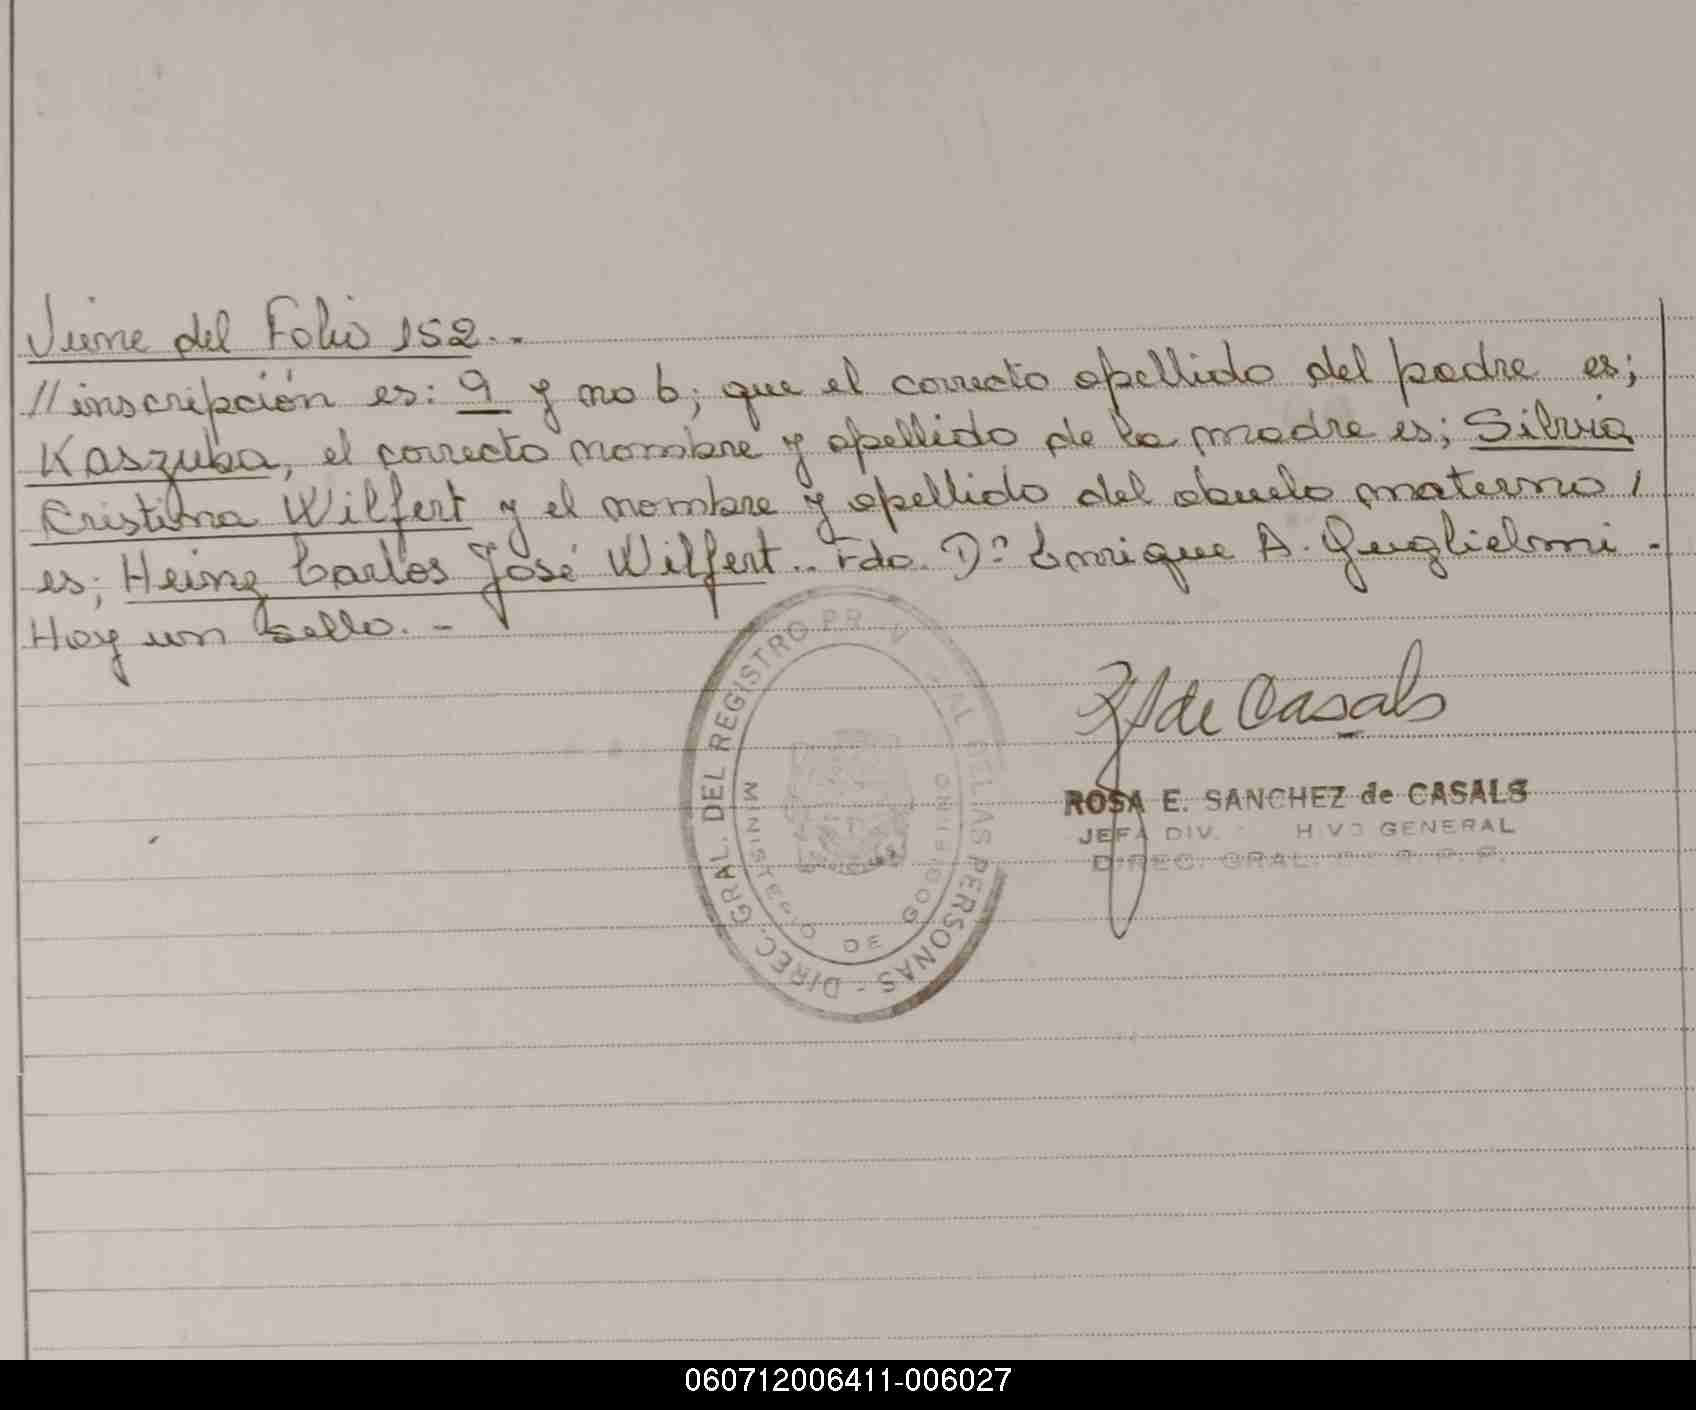 Viene del Folio 152..
//inscripción es: 9 y no 6; que el correcto apellido del padre es;
Kaszuba, el correcto nombre y apellido de la madre es; Silvia
Cristina Wilfert y el nombre y apellido del abuelo materno /
es; Heinz Carlos José Wilfert.. Fdo. Dº Enrique A. Guglielmi.-
Hay un sello.-
DIREC. GRAL. DEL REGISTRO DE LAS PERSONAS -
MINISTERIO DE GOBIERNO
R S de Casals
ROSA E. SANCHEZ de CASALS
JEFA DIV. GENERAL
DIREC. GRAL.
060712006411-006027